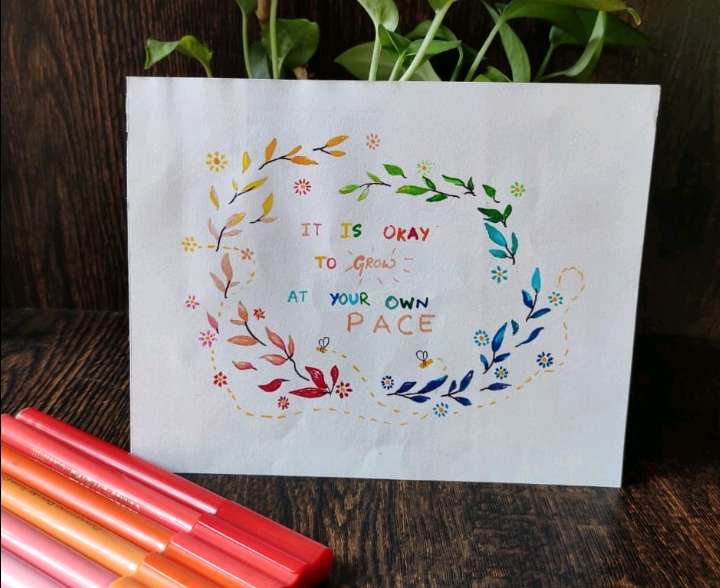 IT IS OKAY
TO GROW
AT YOUR OWN
PACE